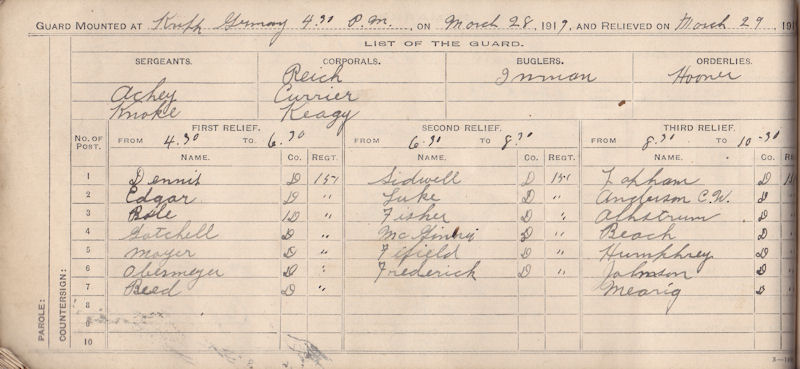 GUARD MOUNTED AT Kripp Germany 4.30 P.M., ON March 28, 1919, AND RELIEVED ON March 29, 191
LIST OF THE GUARD.
SERGEANTS. CORPORALS. BUGLERS. ORDERLIES.
Reich Inman Hoover
Achey Currier
Knoke Keagy
No. OF POST. FIRST RELIEF. SECOND RELIEF. THIRD RELIEF.
FROM 4.30 TO 6.30 FROM 6.30 TO 8.30 FROM 8.30 TO 10-30
NAME. Co. REGT. NAME. Co. REGT. NAME. Co. REGT
1 Dennis D 151 Sidwell D 151 Lapham D
2 Edgar D " Luke D " Anderson C.W. D
3 D " Fisher D " Ahlstrum D
4 Gotchell D " McGinley D " Beach D
5 Moyer D " Fifield D " Humphrey D
6 Obermeyer D " Frederick D " Johnson D
7 Reed D " Mearig D
8
9
10
PAROLE:
COUNTERSIGN: